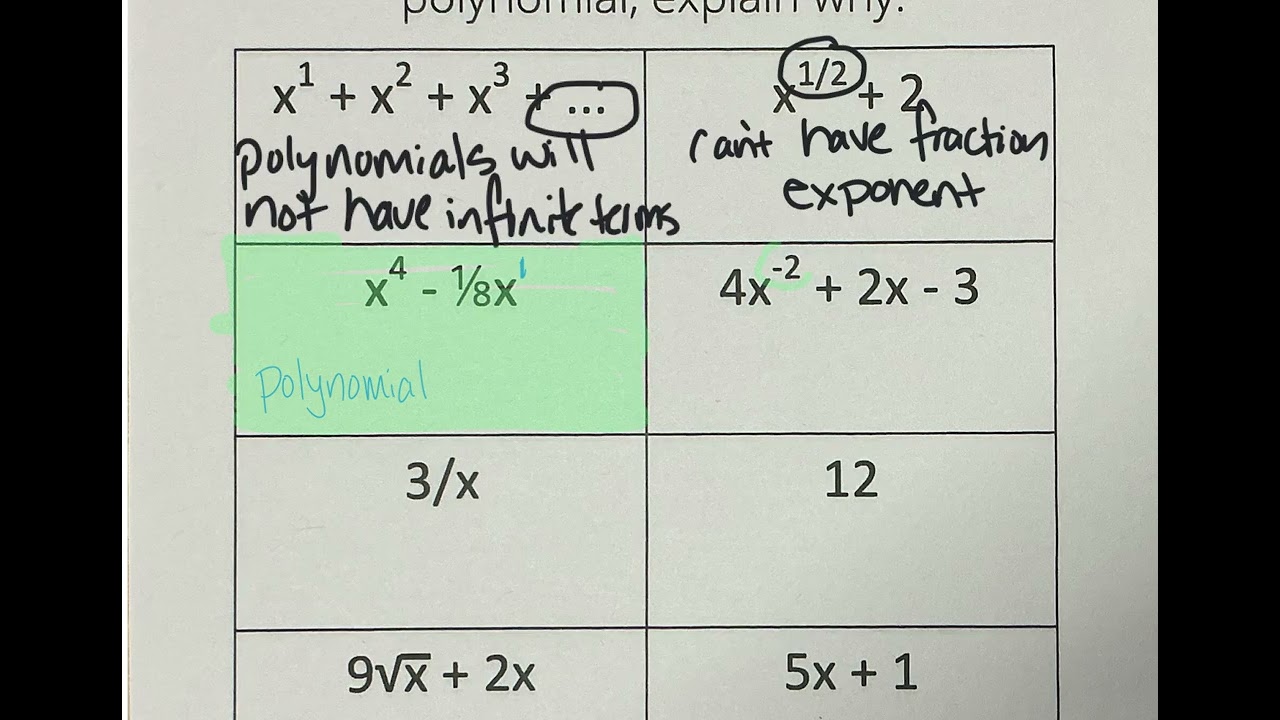 polynomial, explain why.
x¹ + x² + x³ + ...
polynomials will
not have infinite terms
x^1/2 + 2
can't have fraction
exponent
x⁴ - ⅛x¹
polynomial
4x⁻² + 2x - 3
3/x
12
9√x + 2x
5x + 1